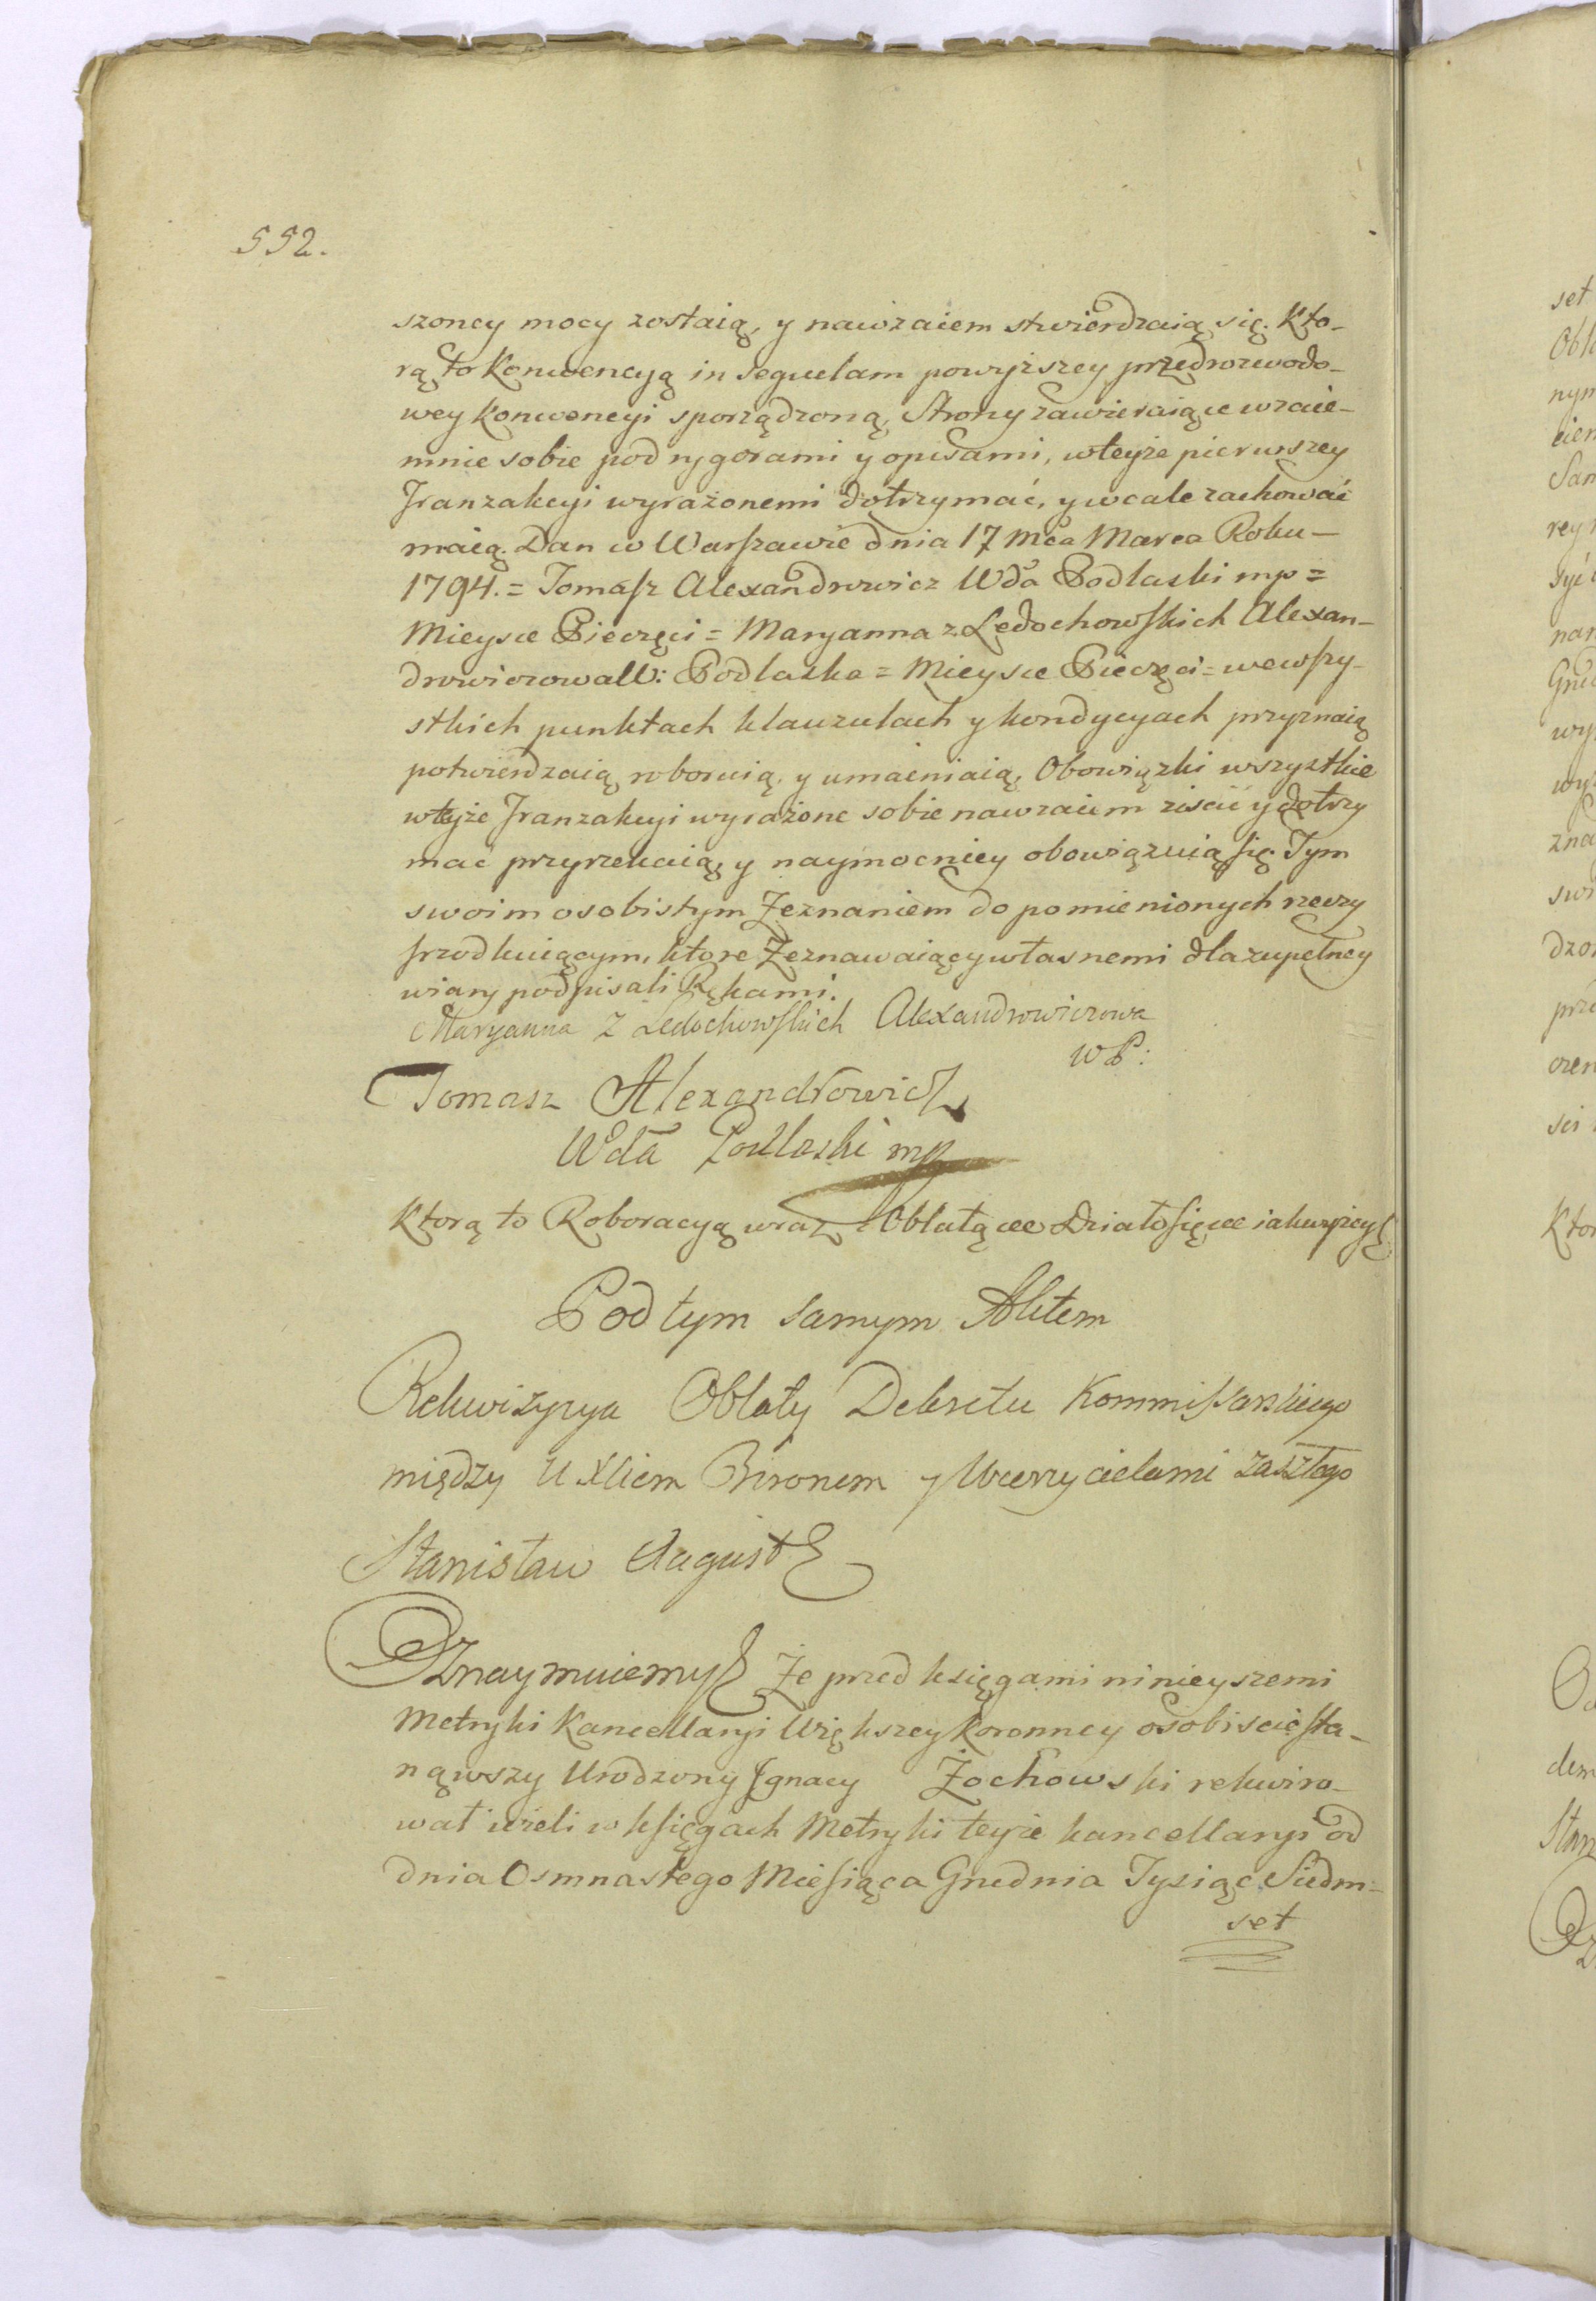 552.
szoney mocy zostaią, y nawzaiem stwierdzaią się. Kto-
rą to Konwencyą in sequelam powyższey przedrozwodo-
wey Konwencyi sporządzoną, Strony zawieraiące wzaie-
mnie sobie pod rygorami y opisami, wteyże pierwszey
Tranzakcyi wyrażonemi dotrzymać, y wcale zachować
maią. Dan w Warszawie dnia 17 Mca Marca Roku
1794. = Tomasz Alexandrowicz Wda Podlaski mp =
Mieysce Pieczęci = Maryanna z Lędochowskich Alexan-
drowiczowa W: Podlaska = Mieysce Pieczęci = wewszy-
stkich punktach klauzulach y kondycyach przyznaią
potwierdzaią roboruią, y umacniaią, Obowiązki wszystkie
wteyże Tranzakcyi wyrażone sobie nawzaiem ziscić y dotrzy
mać przyrzekaią, y naymocniey obowiązuią się. Tym
swoim osobistym Zeznaniem do pomienionych rzeczy
srzodkuiącym, ktore Zeznawaiący własnemi dla zupełney
wiary podpisali Rękami.
Maryanna z Ledochowskich Alexandrowiczowa
WP:
Tomasz Alexandrowicz
Wda Podlaski mp
Ktorą to Roboracyą wraz z Oblatą etc Działo się etc iak wyżey
Pod tym samym Aktem
Rekwizycya Oblaty Dekretu Kommissarskiego
między U Xciem Bironem y Wierzycielami zaszłego
Stanisław August
Oznaymuiemy Że przed księgami ninieyszemi
Metryki Kancellaryi Większey Koronney osobiscie sta-
nąwszy Urodzony Ignacy Żochowski rekwiro-
wał ieżeli w księgach Metryki teyże kancellaryi od
dnia Osmnastego Miesiąca Grudnia Tysiąc Siedm-
set